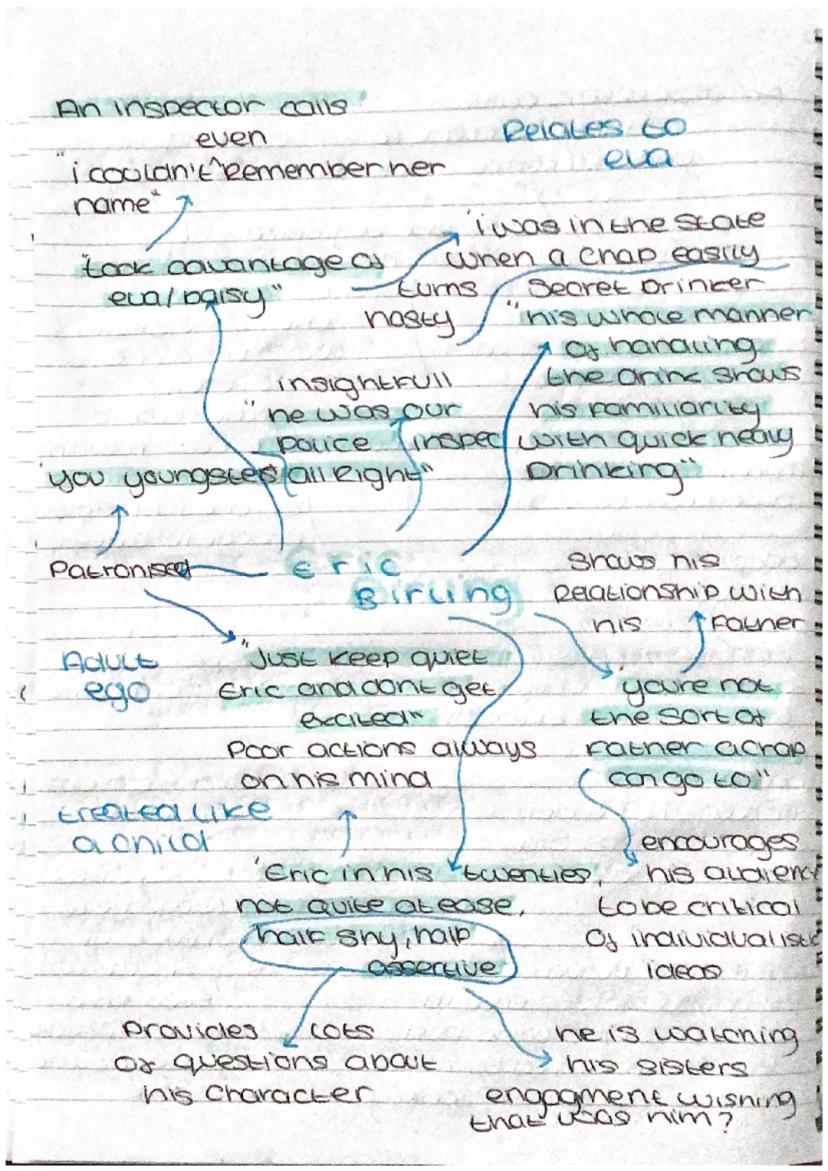 An inspector calls
even
"i couldn't ^ Remember her
name"
Relates to
eva
"took advantage of
eva/Daisy"
"i was in the State
when a chap easily
turns
nasty
Secret Drinker
"his whole manner
of handling
the drink shows
his familiarity
with quick heavy
Drinking"
insightfull
"he was our
police inspec
all Right"
"you youngsters
Patronised
Eric
Birling
Shows his
Relationship with
his Father
Adult
ego
"Just keep quiet
Eric and dont get
excited"
Poor actions always
on his mind
"you're not
the sort of
Father a chap
can go to"
treated like
a child
encourages
his audienc
to be critical
Of individualistic
ideas
"Eric in his twenties,
not quite at ease,
half shy, half
assertive
Provides lots
of questions about
his character
he is watching
his sisters
engagment wishing
that was him?